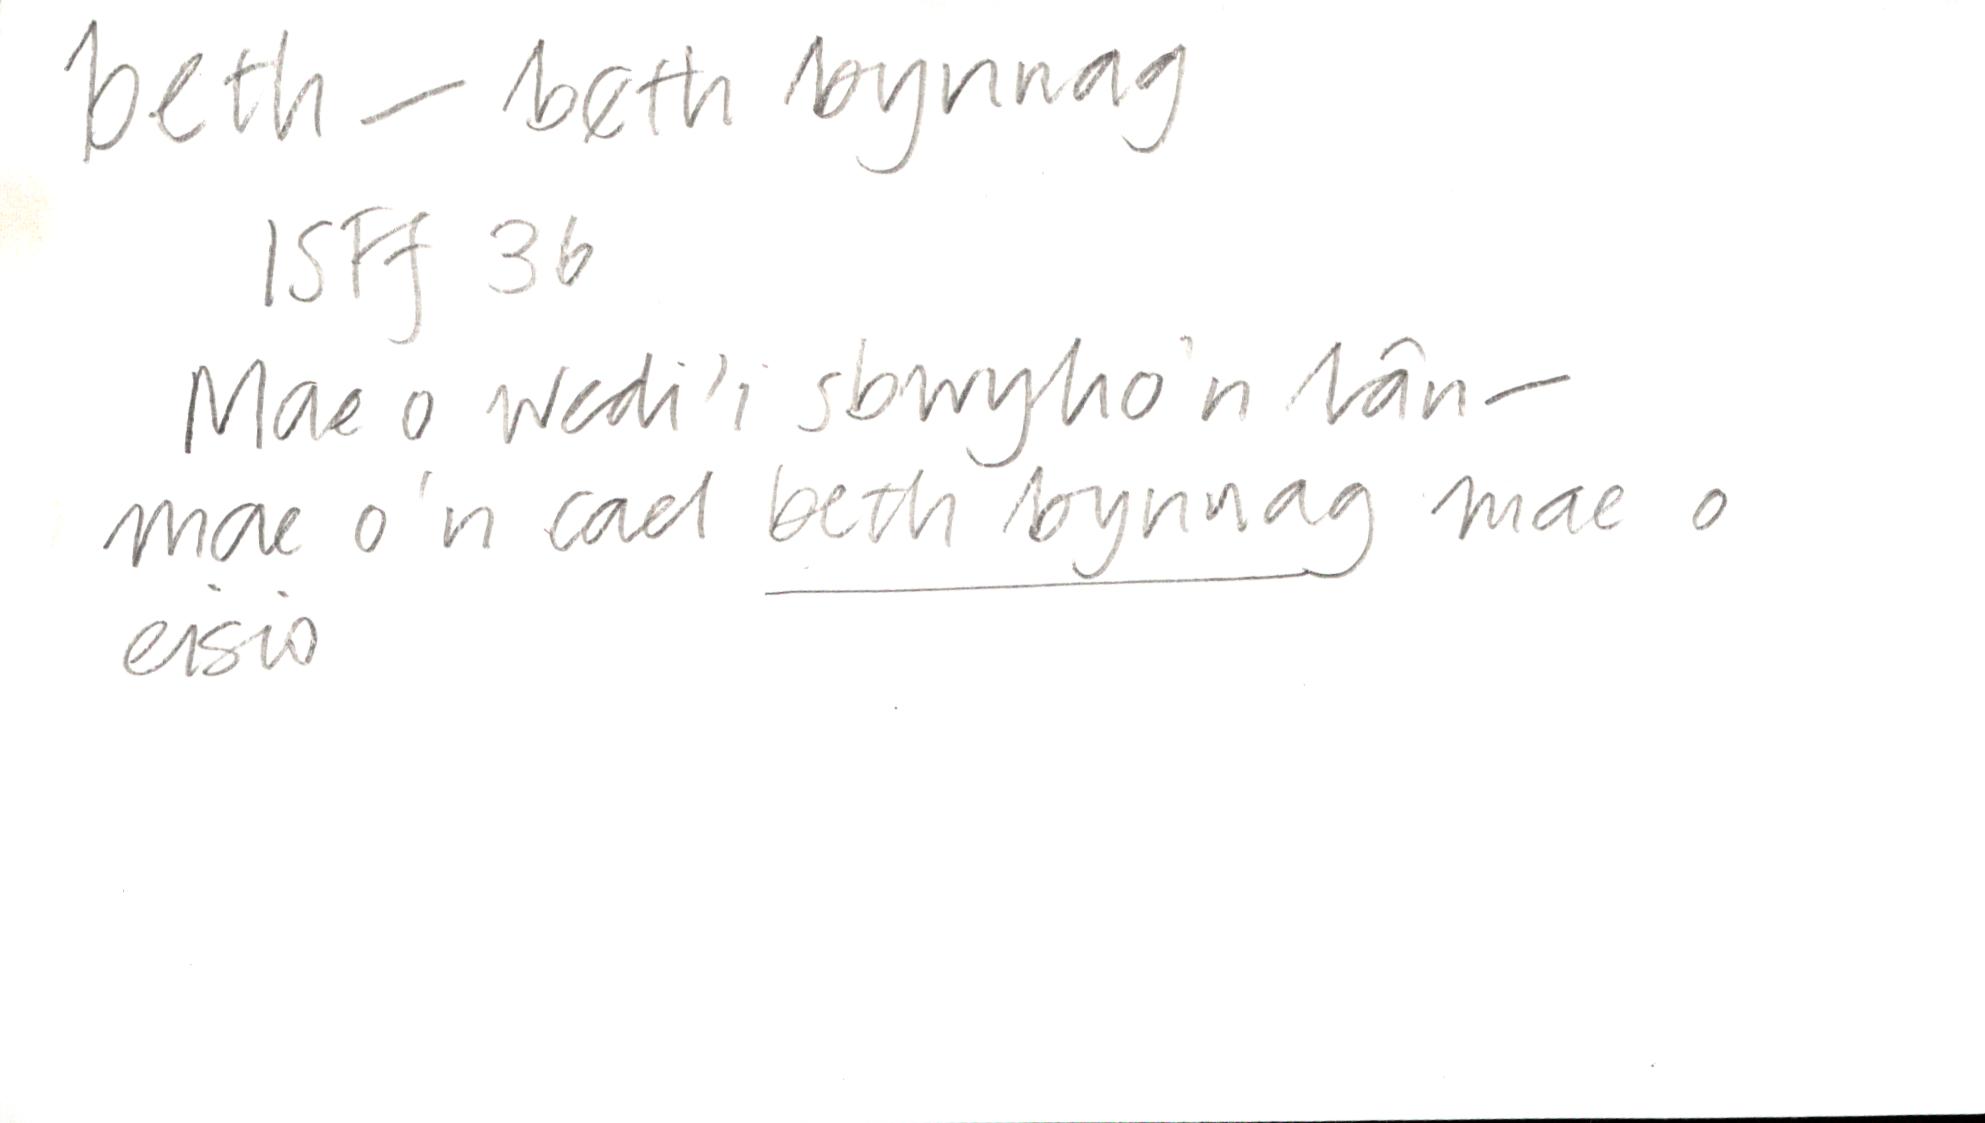 beth – beth bynnag
ISFf 36
Mae o wedi'i sbwylio'n lân –
mae o'n cael beth bynnag mae o
eisio